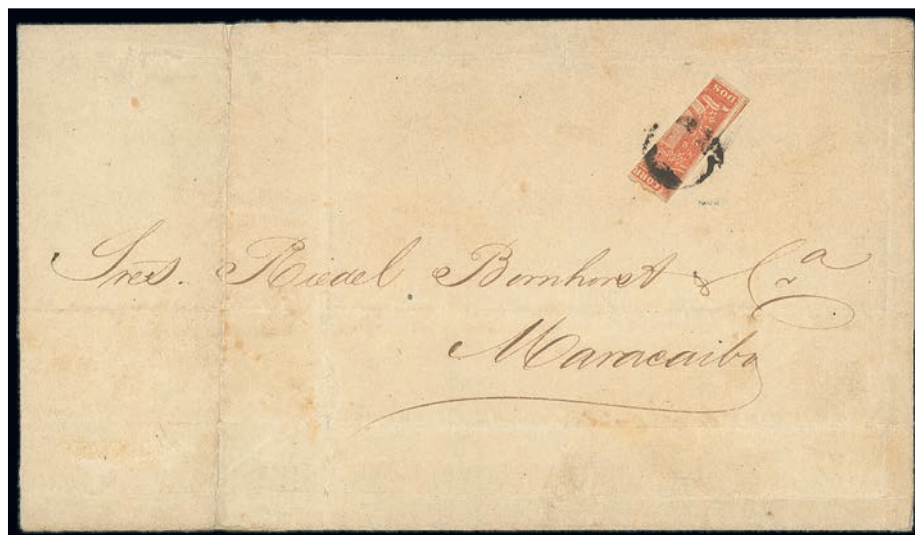 DOS
CORR
Sres. Riedel Bornhorst & Cª
Maracaibo